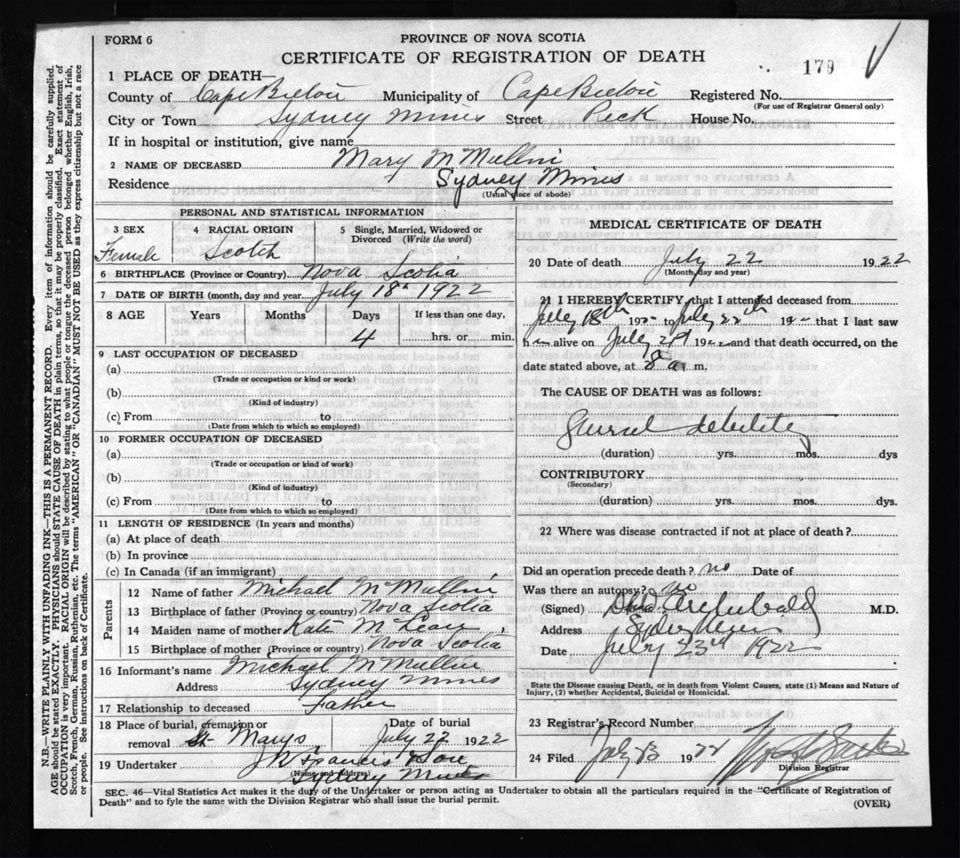 FORM 6
PROVINCE OF NOVA SCOTIA
CERTIFICATE OF REGISTRATION OF DEATH
179
1 PLACE OF DEATH—
County of Cape Breton Municipality of Cape Breton Registered No.
(For use of Registrar General only)
City or Town Sydney Mines Street Peck House No.
If in hospital or institution, give name
2 NAME OF DECEASED Mary McMullin
Residence Sydney Mines
(Usual place of abode)
PERSONAL AND STATISTICAL INFORMATION
3 SEX Female
4 RACIAL ORIGIN Scotch
5 Single, Married, Widowed or Divorced (Write the word)
6 BIRTHPLACE (Province or Country) Nova Scotia
7 DATE OF BIRTH (month, day and year) July 18th 1922
8 AGE Years Months Days If less than one day,
4 hrs. or min.
9 LAST OCCUPATION OF DECEASED
(a)
(Trade or occupation or kind or work)
(b)
(Kind of industry)
(c) From to
(Date from which to which so employed)
10 FORMER OCCUPATION OF DECEASED
(a)
(Trade or occupation or kind of work)
(b)
(Kind of industry)
(c) From to
(Date from which to which so employed)
11 LENGTH OF RESIDENCE (In years and months)
(a) At place of death
(b) In province
(c) In Canada (if an immigrant)
Parents
12 Name of father Michael McMullin
13 Birthplace of father (Province or country) Nova Scotia
14 Maiden name of mother Kate McLean
15 Birthplace of mother (Province or country) Nova Scotia
16 Informant's name Michael McMullin
Address Sydney Mines
17 Relationship to deceased Father
18 Place of burial, cremation or removal St Marys Date of burial July 22 1922
19 Undertaker J R Francis & Son
(Name and Address)
Sydney Mines
MEDICAL CERTIFICATE OF DEATH
20 Date of death July 22 1922
(Month, day and year)
21 I HEREBY CERTIFY, that I attended deceased from
July 18th 192- to July 22th 192- that I last saw
h alive on July 21st 1922 and that death occurred, on the
date stated above, at a. m.
The CAUSE OF DEATH was as follows:
General debility
(duration) yrs. mos. dys
CONTRIBUTORY
(Secondary)
(duration) yrs. mos. dys.
22 Where was disease contracted if not at place of death?
Did an operation precede death? no Date of
Was there an autopsy? no
(Signed) Archibald M.D.
Address Sydney Mines
Date July 23rd 1922
State the Disease causing Death, or in death from Violent Causes, state (1) Means and Nature of
Injury, (2) whether Accidental, Suicidal or Homicidal.
23 Registrar's Record Number
24 Filed July 23 1922
Division Registrar
SEC. 46—Vital Statistics Act makes it the duty of the Undertaker or person acting as Undertaker to obtain all the particulars required in the "Certificate of Registration of
Death" and to fyle the same with the Division Registrar who shall issue the burial permit.
(OVER)
N.B.—WRITE PLAINLY WITH UNFADING INK—THIS IS A PERMANENT RECORD. Every item of information should be carefully supplied.
AGE should be stated EXACTLY. PHYSICIANS should STATE CAUSE OF DEATH in plain terms, so that it may be properly classified. Exact statement of
OCCUPATION is very important. RACIAL ORIGIN will be described by stating to what people or tongue the deceased person belonged whether English, Irish,
Scotch, French, German, Russian, Ruthenian, etc. The terms "AMERICAN" OR "CANADIAN" MUST NOT BE USED as they express citizenship but not a race
or people. See instructions on back of Certificate.